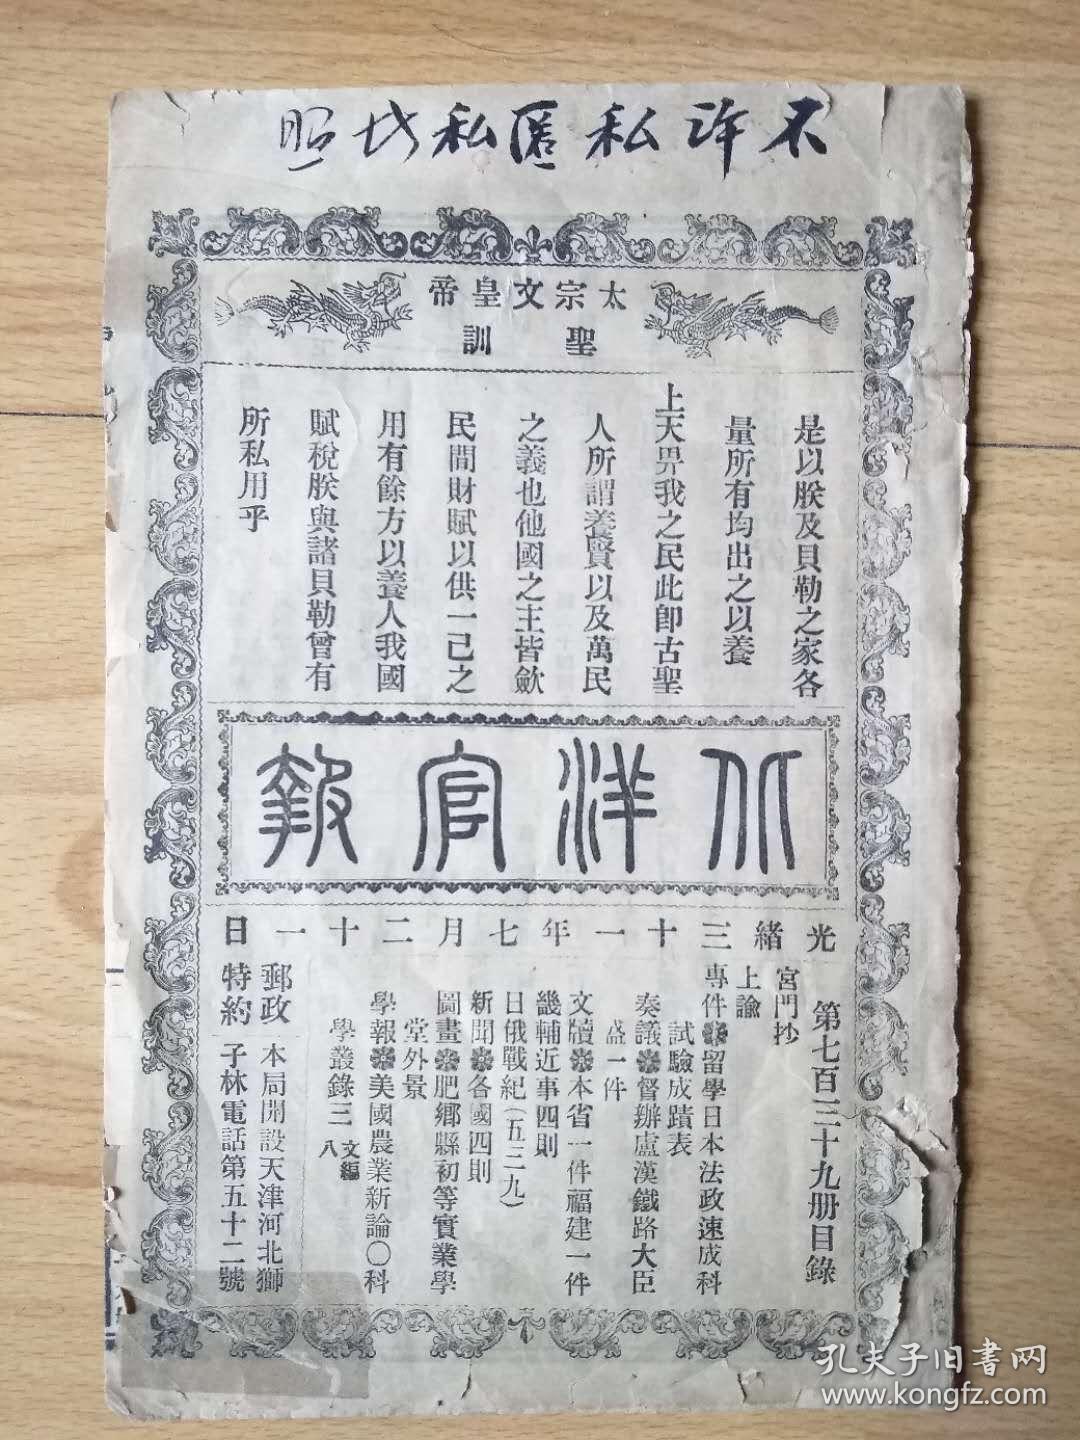 不許私匿私
太宗文皇帝
聖訓
是以朕及貝勒之家各
量所有均出之以養
上天畀我之民此卽古聖
人所謂養賢以及萬民
之義也他國之主皆斂
民間財賦以供一己之
用有餘方以養人我國
賦稅朕與諸貝勒曾有
所私用乎
北洋官報
光緒三十一年七月二十一日
第七百三十九册目錄
宮門抄
上諭
專件❋留學日本法政速成科
試驗成蹟表
奏議❋督辦盧漢鐵路大臣
盛一件
文牘❋本省一件福建一件
畿輔近事四則
日俄戰紀(五三九)
新聞❋各國四則
圖畫❋肥鄉縣初等實業學
堂外景
學報❋美國農業新論〇科
學叢錄三文編八
郵政特約
本局開設天津河北獅
子林電話第五十二號
孔夫子旧書网
www.kongfz.com